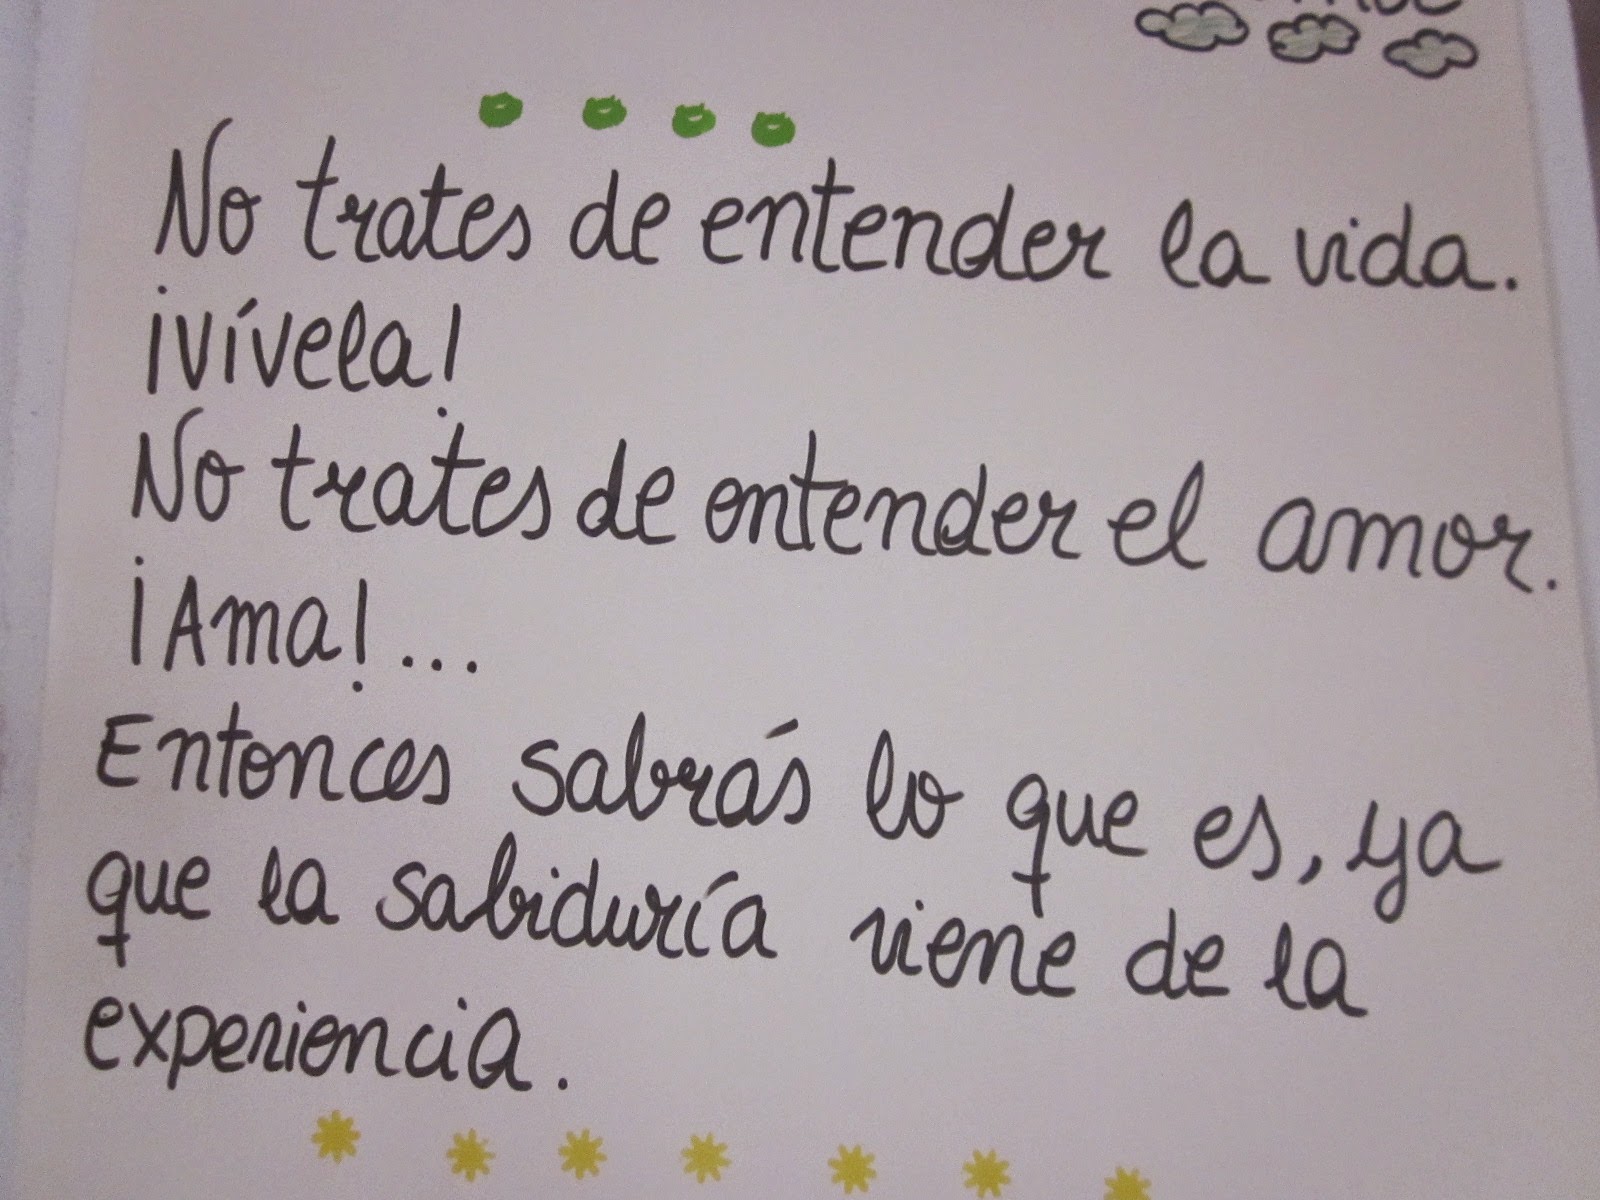 No trates de entender la vida.
¡Vívela!
No trates de entender el amor.
¡Ama!...
Entonces sabrás lo que es, ya
que la sabiduría viene de la
experiencia.